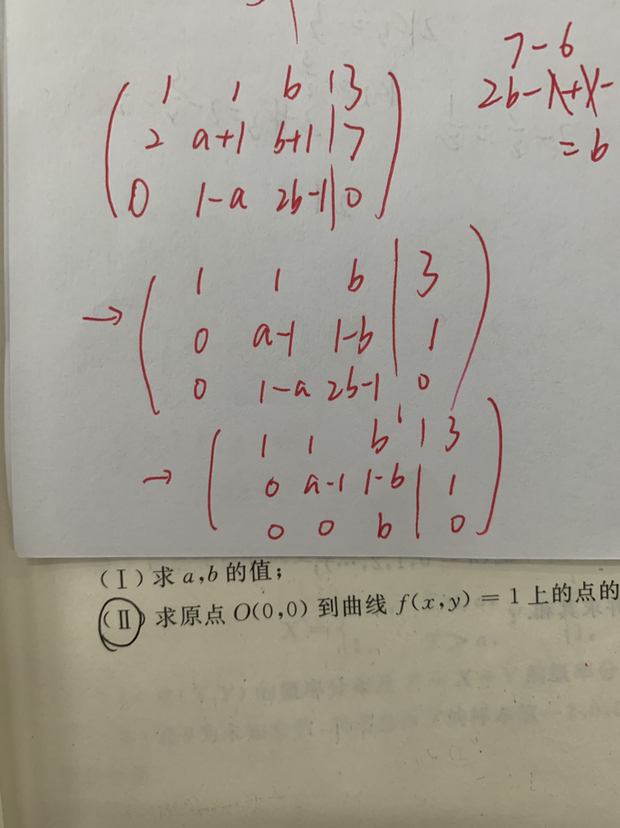 7-6
1 1 b | 3
2b-1+1-
2 a+1 b+1 | 7
=b
0 1-a 2b-1 | 0
1 1 b | 3
→ 0 a-1 1-b | 1
0 1-a 2b-1 | 0
1 1 b | 3
→ 0 a-1 1-b | 1
0 0 b | 0
(Ⅰ)求a,b的值;
(Ⅱ)求原点O(0,0)到曲线f(x,y)=1上的点的